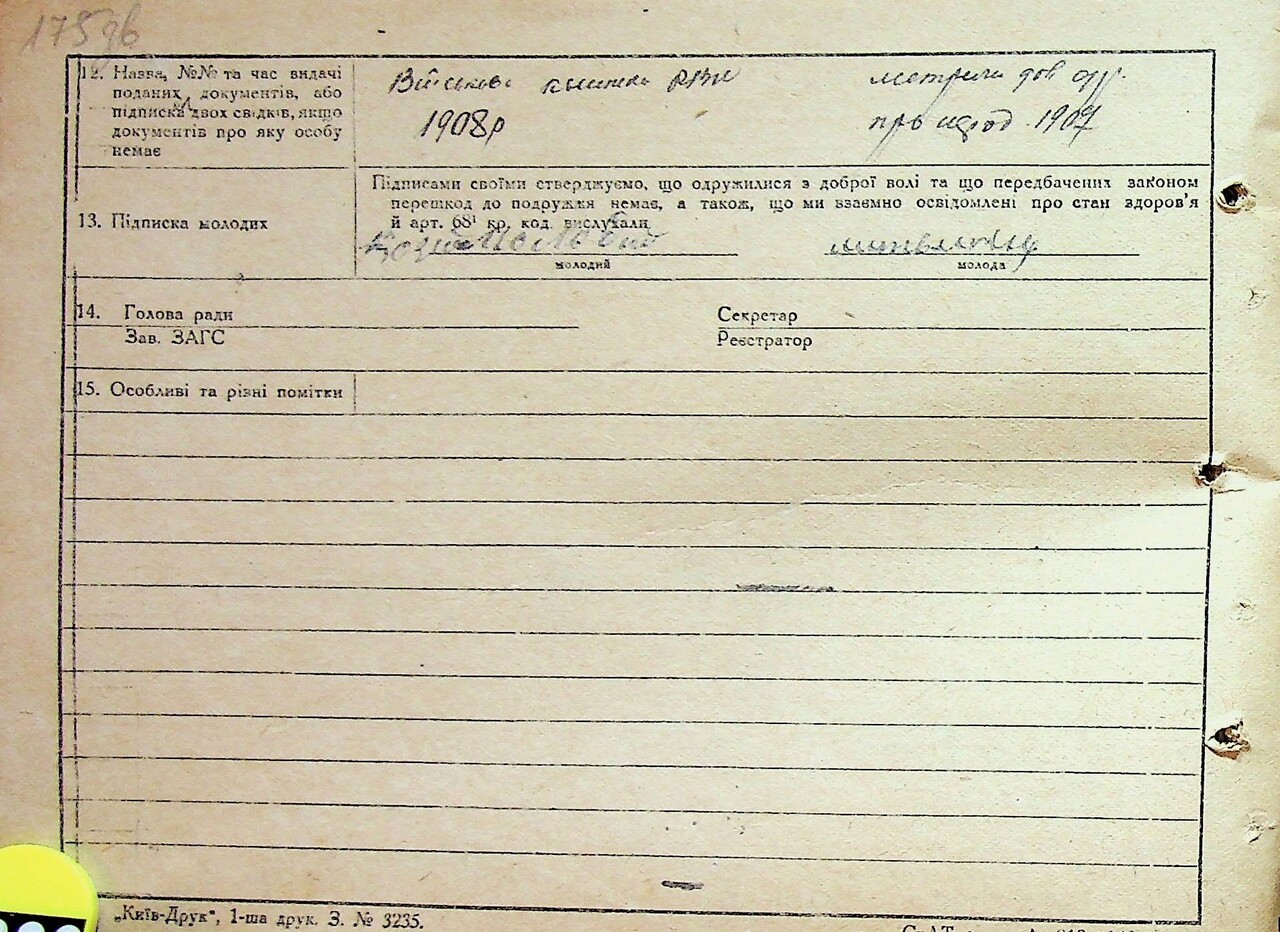 175зв
12. Назва, №№ та час видачі
поданих документів, або
підписка двох свідків, якщо
документів про яку особу
немає
Військова книжка РВК
1908р
метричн дов
про народ. 1907
Підписами своїми стверджуємо, що одружилися з доброї волі та що передбачених законом
перешкод до подружжя немає, а також, що ми взаємно освідомлені про стан здоров'я
й арт. 68¹ кр. код. вислухали
13. Підписка молодих
молодий
молода
14. Голова ради
Зав. ЗАГС
Секретар
Реєстратор
15. Особливі та різні помітки
„Київ-Друк", 1-ша друк. З. № 3235.